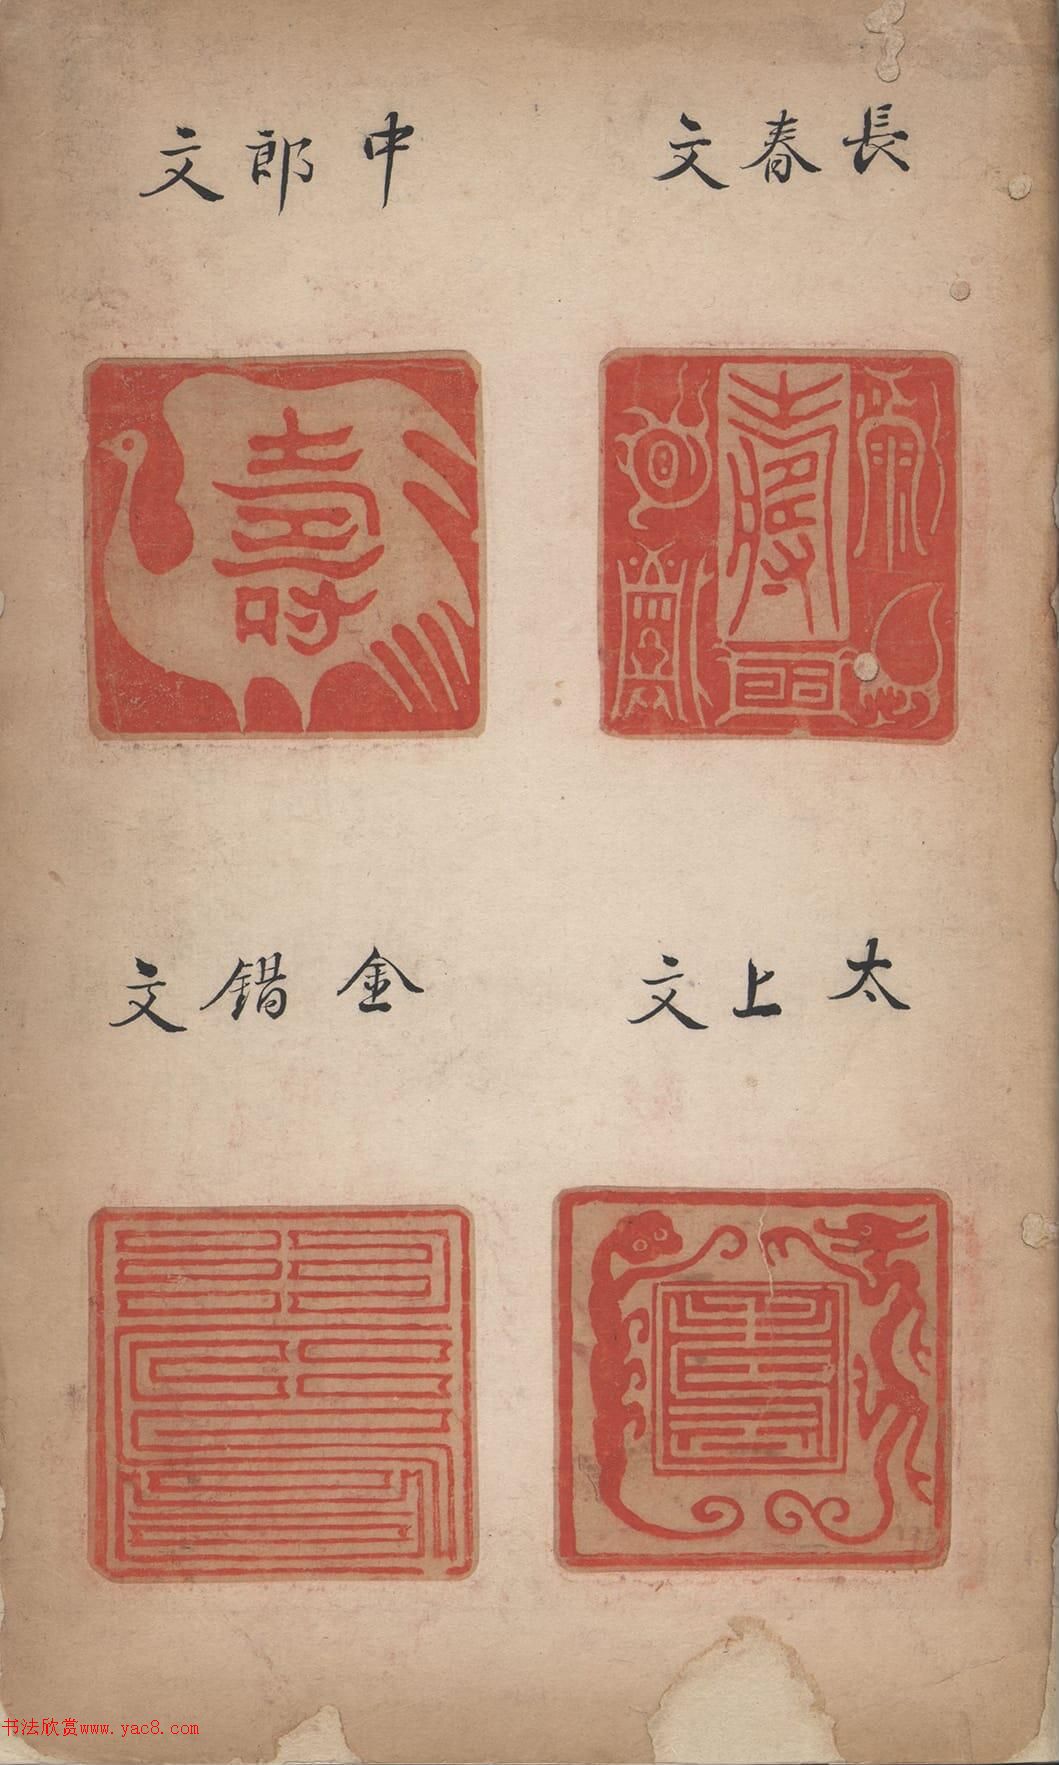 長春文
中郎文
壽
太上文
金錯文
壽
书法欣赏www.yac8.com